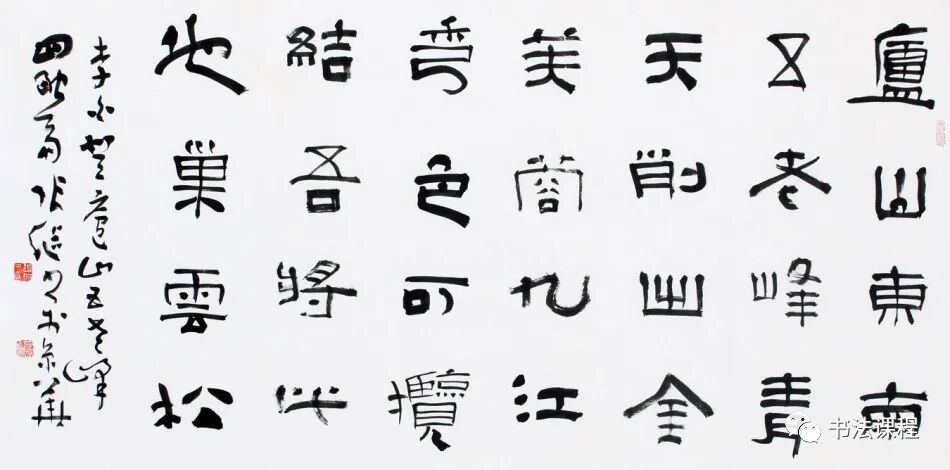 廬山東南
五老峰青
天削出金
芙蓉九江
秀色可攬
結吾將此
地巢雲松
李白登廬山五老峰
四融齋張繼書於京華
书法课程